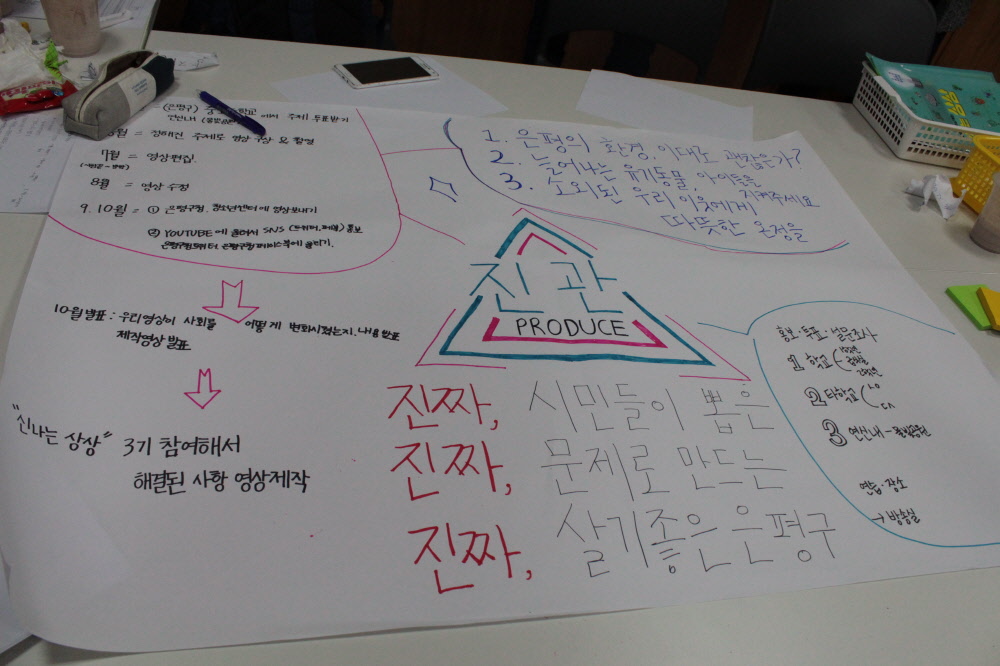 (은평구)
연신내
에서 주제 투표받기
정해진 주제로 영상 구상 & 촬영
7월 = 영상편집!
8월 = 영상 수정
9. 10월 = ① 은평구청. 청소년센터에 영상보내기
② YOUTUBE에 올려서 SNS 홍보
10월 발표 : 우리영상이 사회를 어떻게 변화시켰는지. 내용 발표
제작영상 발표
"신나는 상상" 3기 참여해서
해결된 사항 영상제작
1. 은평의 환경, 이대로 괜찮은가?
2. 늘어나는 유기동물, 아이들을 지켜주세요
3. 소외된 우리 이웃에게
따뜻한 온정을
진관
PRODUCE
진짜, 시민들이 뽑은
진짜, 문제로 만드는
진짜, 살기좋은 은평구
홍보·투표·설문조사
1 학교
2 타학교
3 연신내 -
연습·장소
→ 방송실